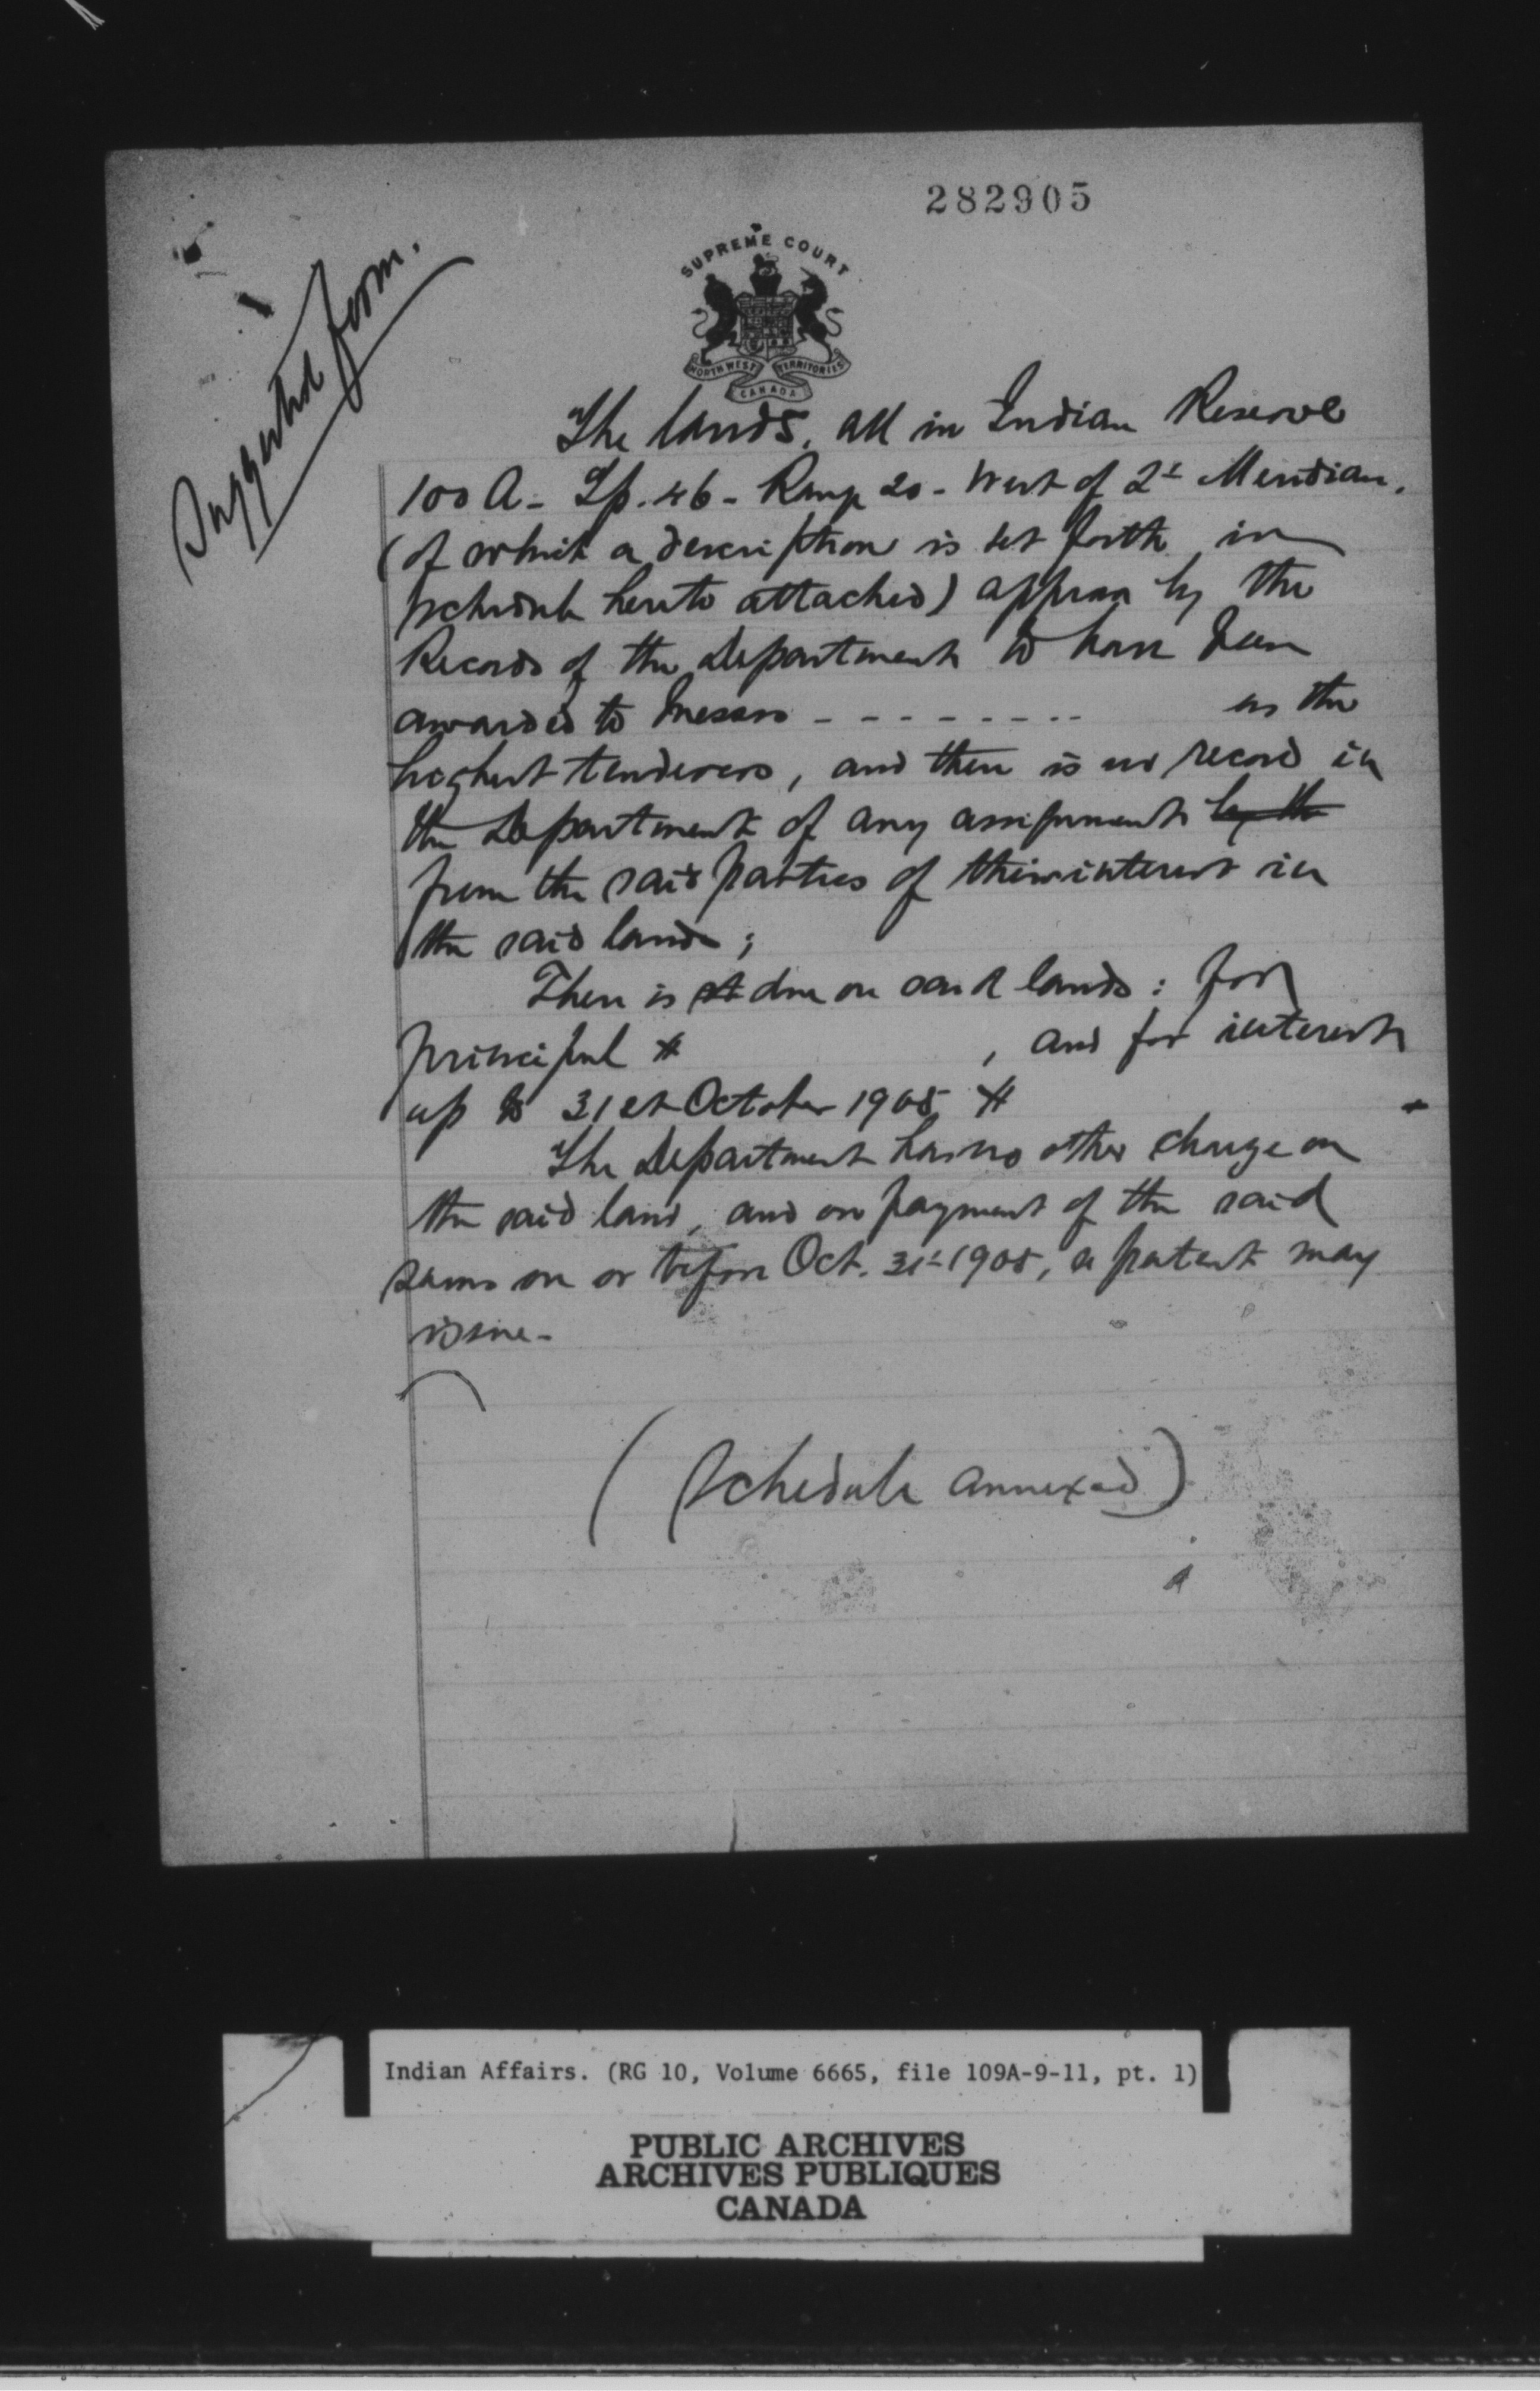 282905
SUPREME COURT
NORTH WEST TERRITORIES
CANADA
Suggested form.
The lands, all in Indian Reserve
100 A - Tp. 46 - Range 20 - West of 2d Meridian,
(of which a description is set forth in
schedule hereto attached) appear by the
Records of the Department to have been
awarded to Messrs - - - - - - - - - as the
highest tenderers, and there is no record in
the Department of any assignments by the
from the said parties of their interest in
the said lands;
There is due on said lands: for
principal $ , and for interest
up to 31st October 1905 $
The Department has no other charge on
the said land, and on payment of the said
sums on or before Oct. 31st 1905, a patent may
issue -
(Schedule annexed)
Indian Affairs. (RG 10, Volume 6665, file 109A-9-11, pt. 1)
PUBLIC ARCHIVES
ARCHIVES PUBLIQUES
CANADA